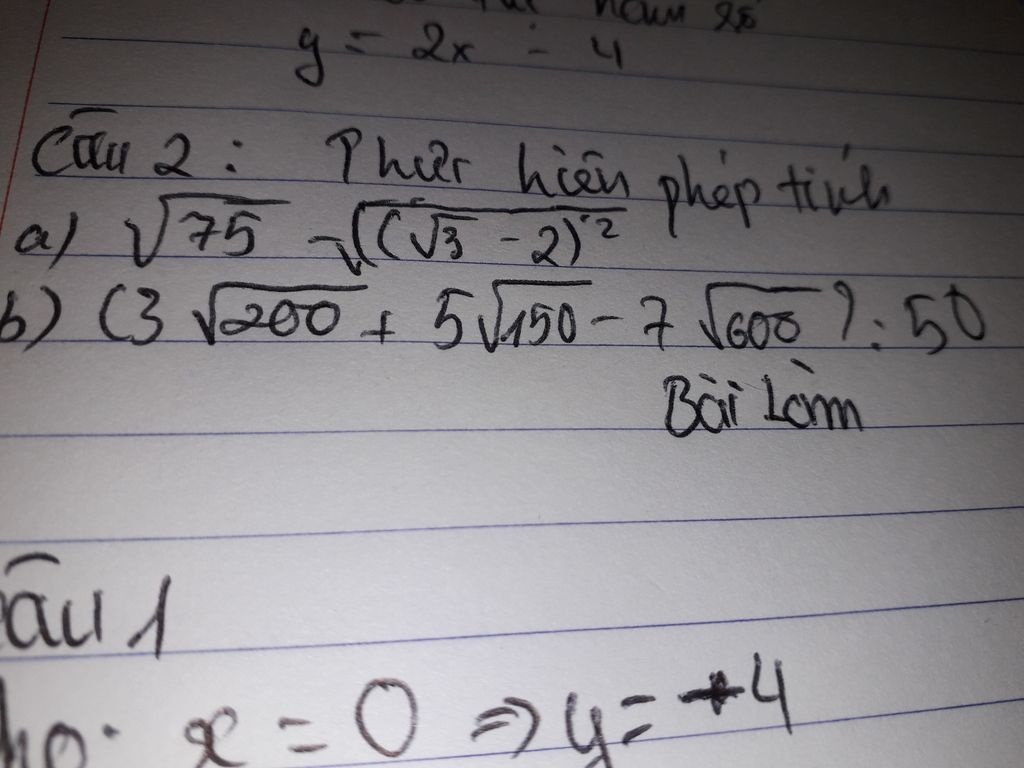 hàm số
y = 2x - 4
Câu 2 : Thực hiện phép tính
a) √75 - √(√3 - 2)²
b) (3 √200 + 5√150 - 7 √600) : 50
Bài Làm
Câu 1
x = 0 => y = -4